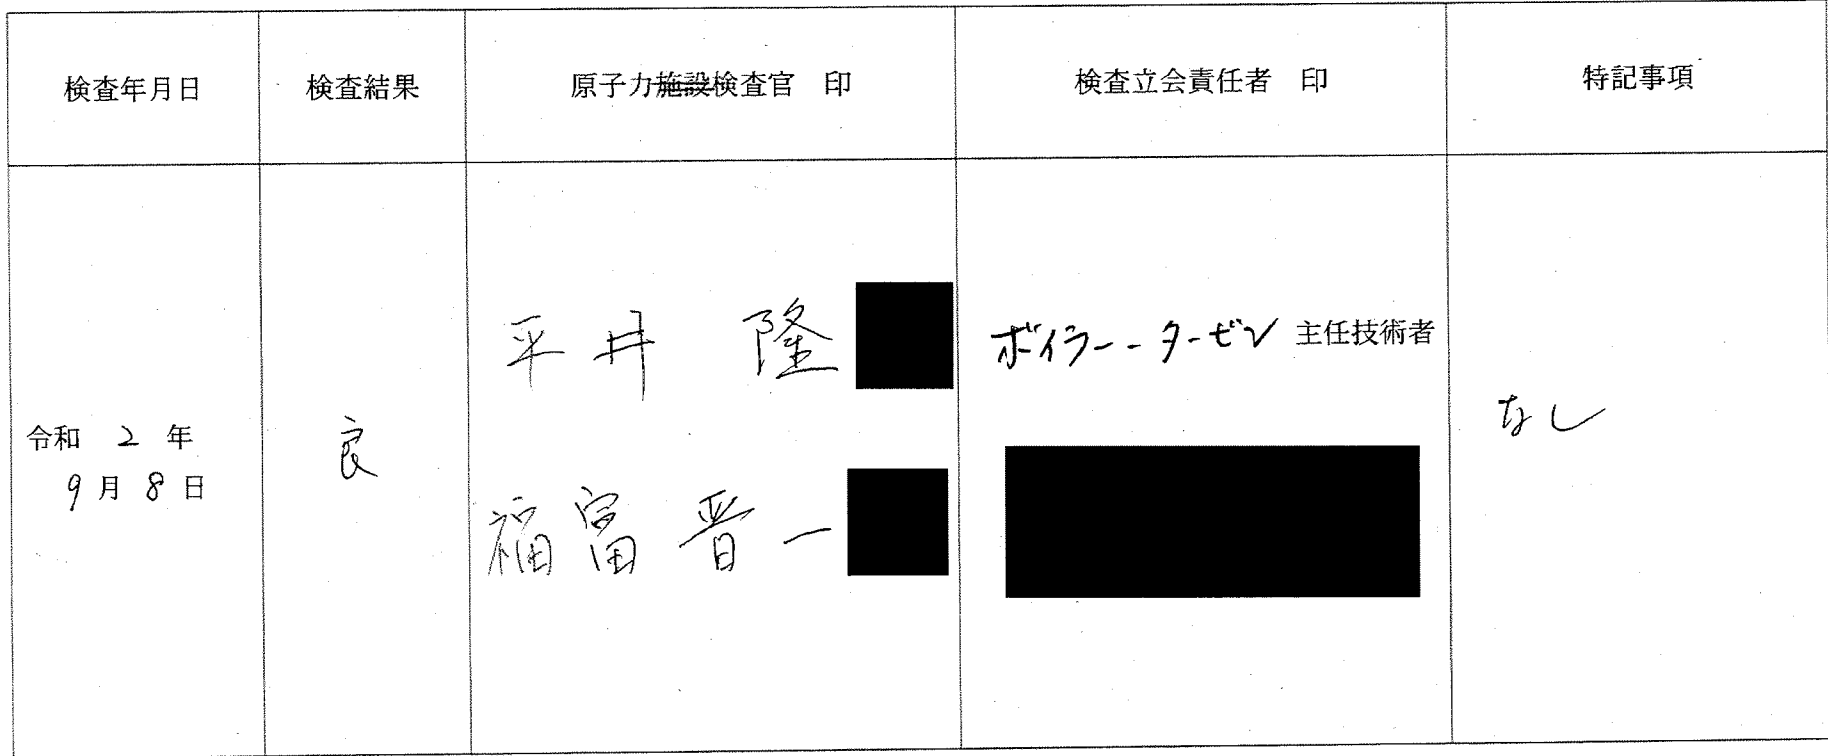 検査年月日
検査結果
原子力施設検査官 印
検査立会責任者 印
特記事項
令和 2 年
9 月 8 日
良
平井 隆
福富晋一
ボイラー・タービン 主任技術者
なし